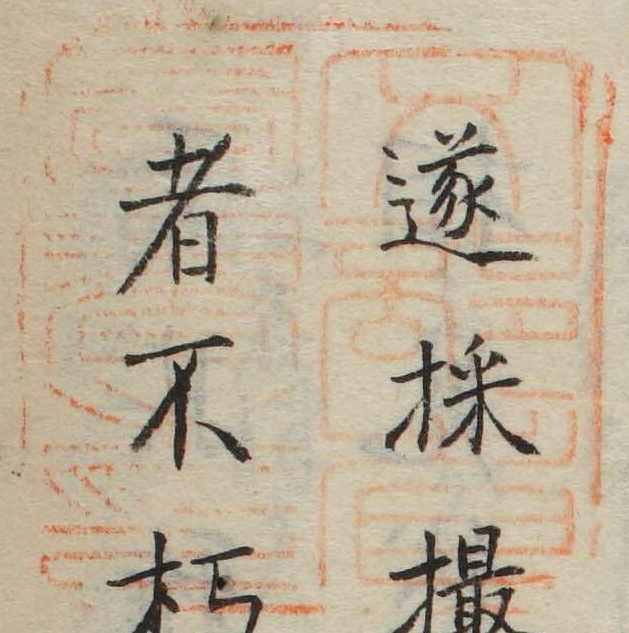 遂採撮
者不朽